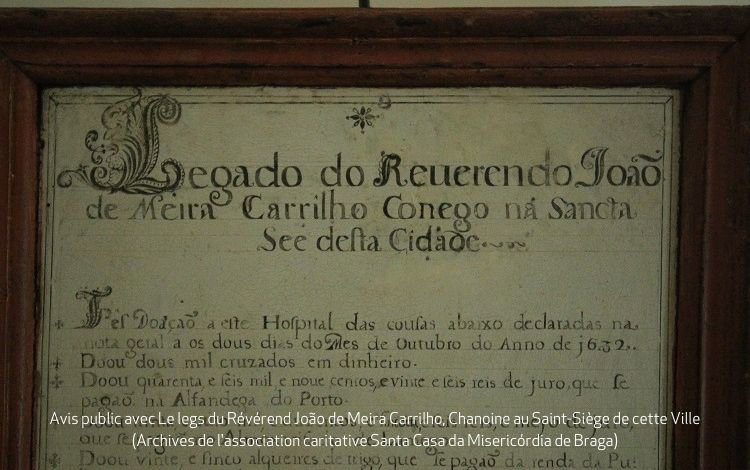 Legado do Reuerendo Joaõ
de Meira Carrilho Conego ná Sancta
Seè desta Cidade
Fes Doaçaõ a este Hospital das cousas abaixo declaradas na
nota geral a os dous dias do Mes de Outubro do Anno de j632.
Doou dous mil cruzados em dinheiro.
Doou quarenta, e seis mil e noue centos, e vinte e seis reis de juro, que se
pagaõ na Alfandega do Porto.
Avis public avec Le legs du Révérend João de Meira Carrilho, Chanoine au Saint-Siège de cette Ville
que se
(Archives de l'association caritative Santa Casa da Misericórdia de Braga)
Doou vinte, e sinco alqueires de trigo, que se pagaõ da renda da Pu: